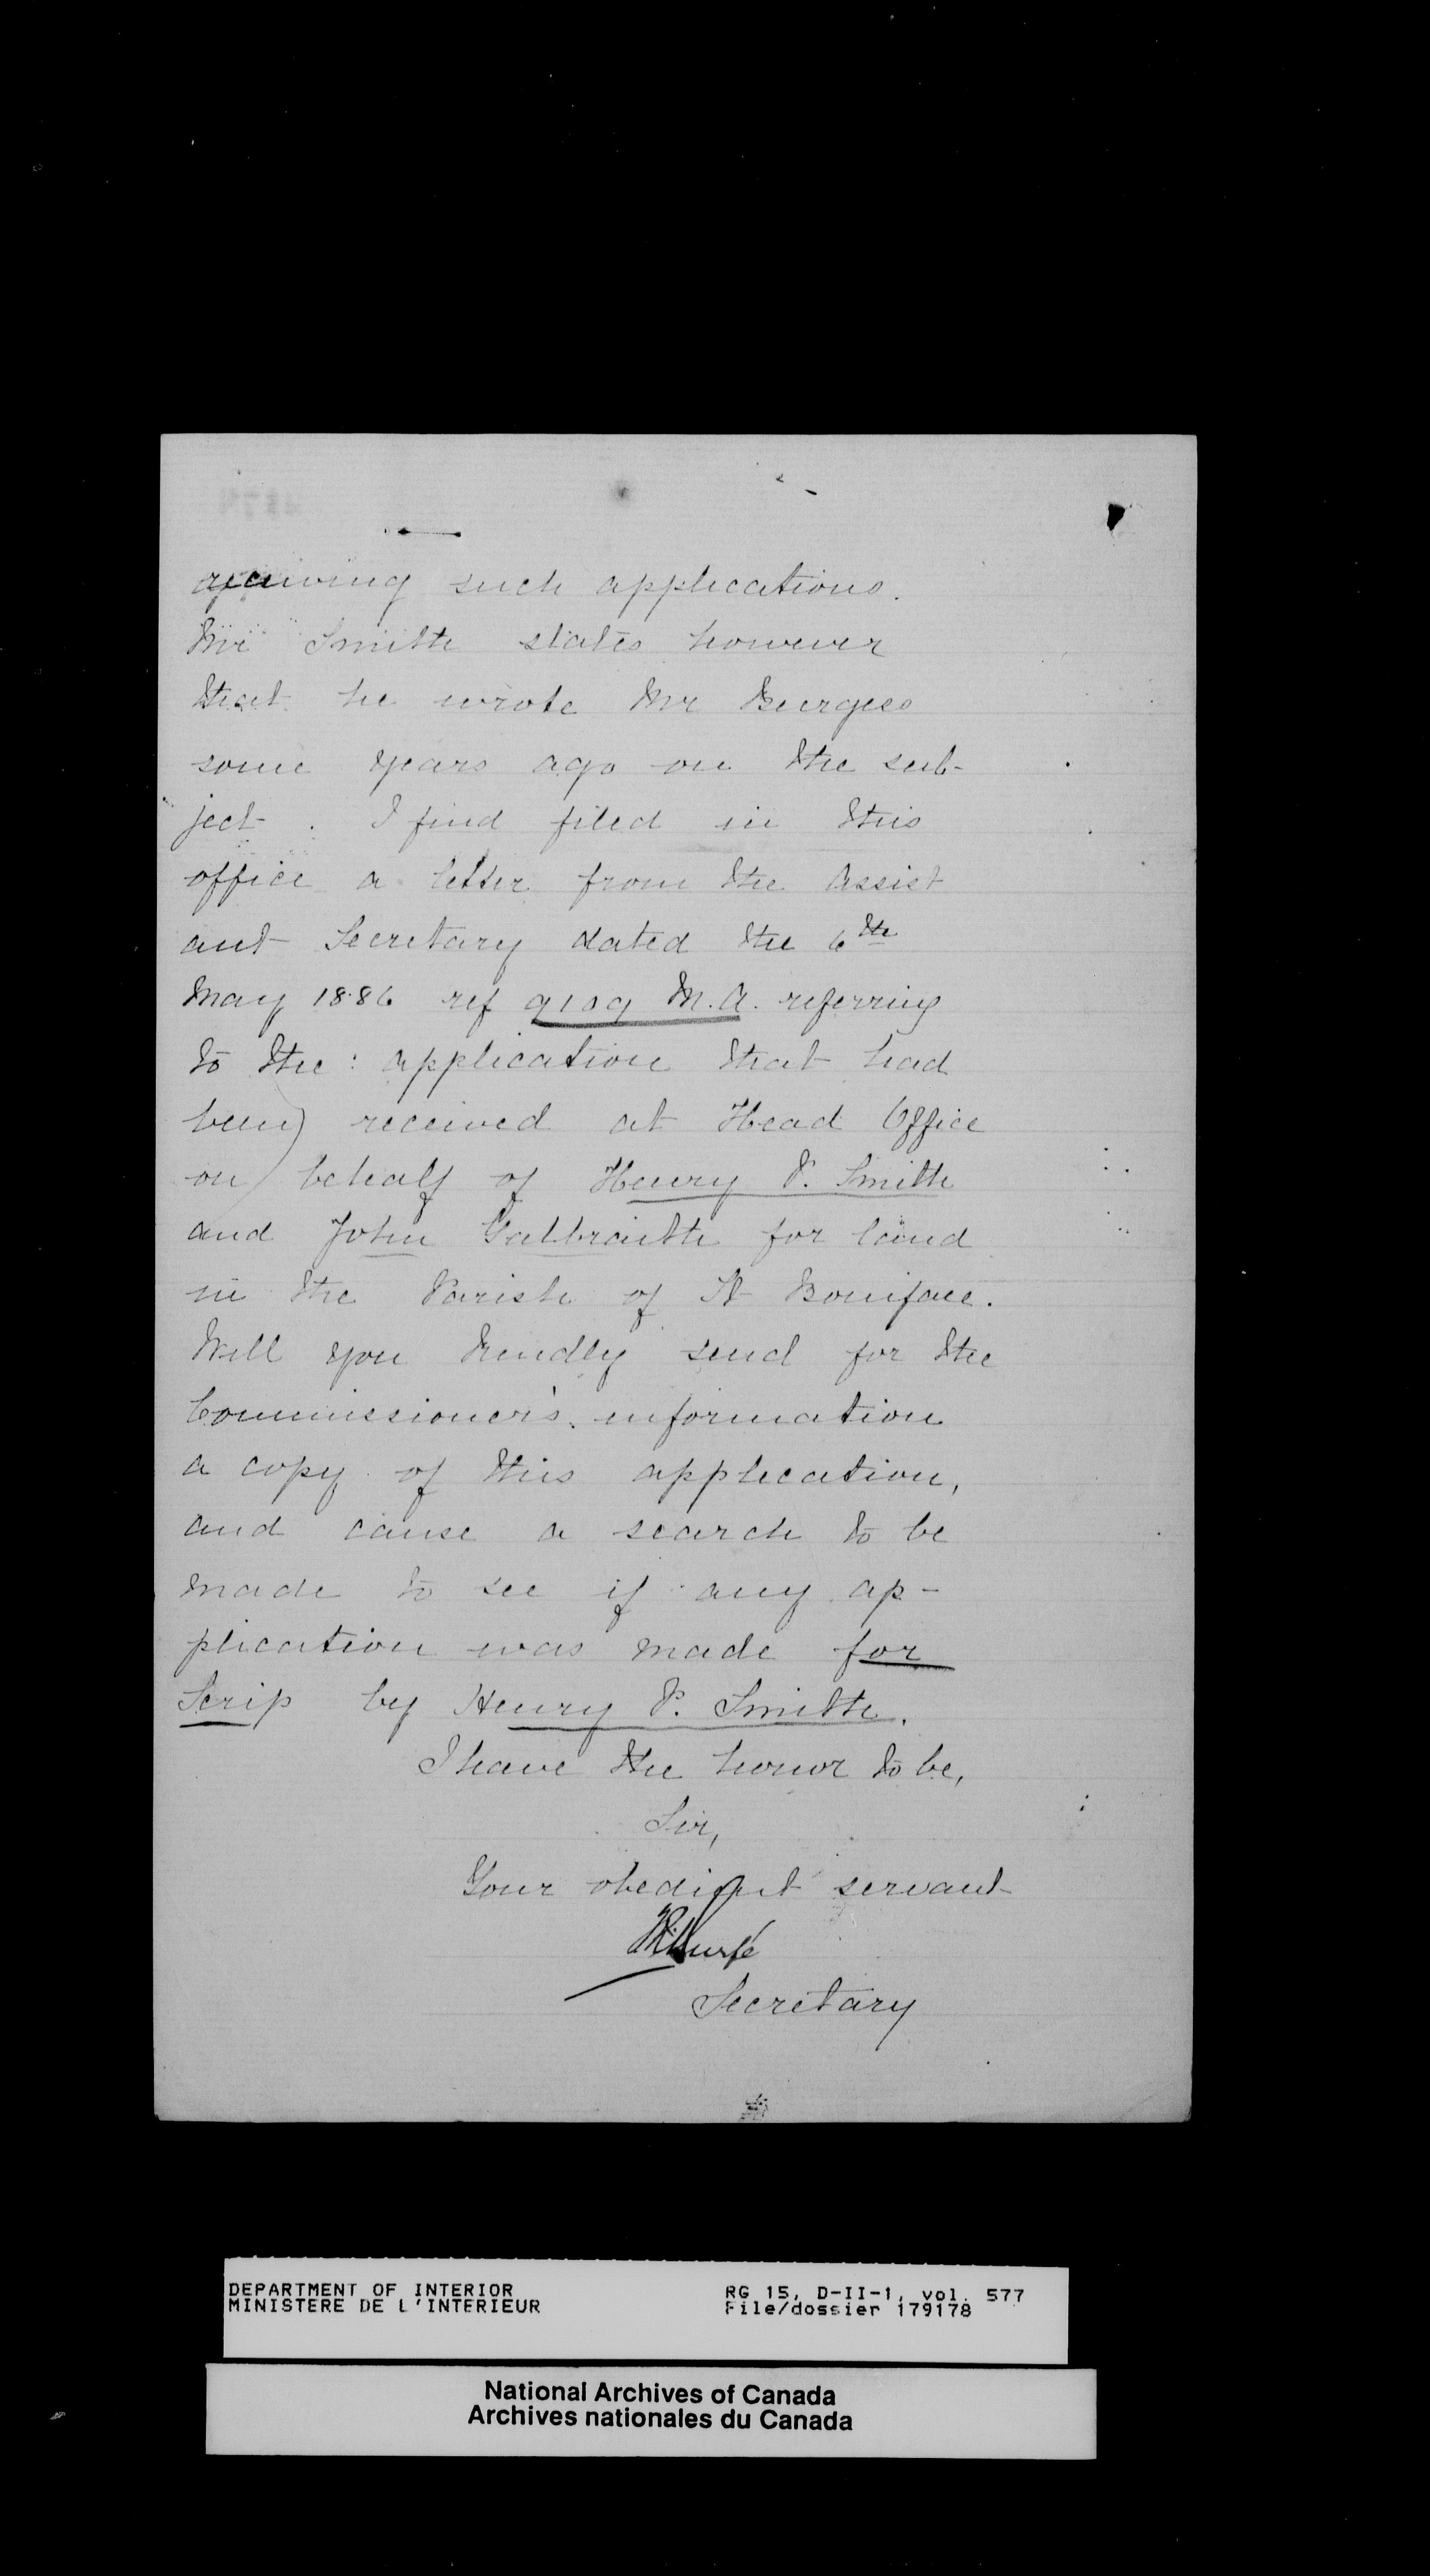 receiving such applications.
Mr Smith states however
that he wrote Mr Burgess
some years ago on the sub-
ject. I find filed in this
office a letter from the Assist
ant Secretary dated the 6th
May 1886 ref 9109 M.A. referring
to the application that had
been received at Head Office
on behalf of Henry P. Smith
and John Galbraith for land
in the Parish of St Boniface.
Will you kindly send for the
Commissioner's information
a copy of this application,
and cause a search to be
made to see if any ap-
plication was made for
Scrip by Henry P. Smith.
I have the honor to be,
Sir,
Your obedient servant
Secretary
DEPARTMENT OF INTERIOR
MINISTERE DE L'INTERIEUR
RG 15, D-II-1, vol. 577
File/dossier 179178
National Archives of Canada
Archives nationales du Canada